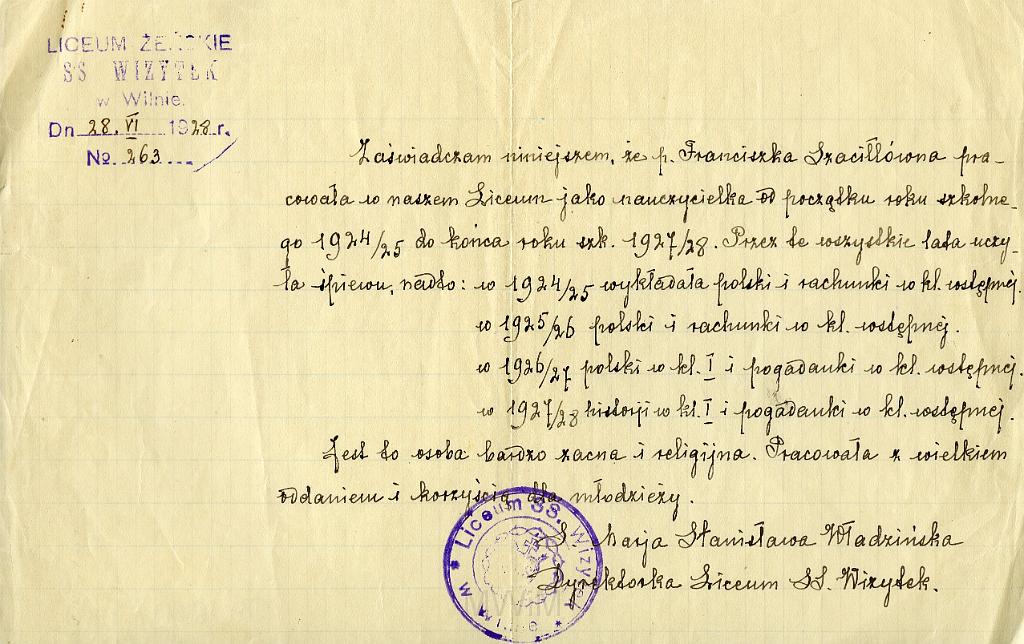 LICEUM ŻEŃSKIE
SS WIZYTEK
w Wilnie.
Dn 28. VI 1928 r.
No. 263
Zaświadczam niniejszem, że p. Franciszka Szaciłłówna pra-
cowała w naszem Liceum jako nauczycielka od początku roku szkolne-
go 1924/25 do końca roku szk. 1927/28. Przez te wszystkie lata uczy-
ła śpiewu, nadto: w 1924/25 wykładała polski i rachunki w kl. wstępnej.
w 1925/26 polski i rachunki w kl. wstępnej.
w 1926/27 polski w kl. I i pogadanki w kl. wstępnej.
w 1927/28 historji w kl. I i pogadanki w kl. wstępnej.
Jest to osoba bardzo zacna i religijna. Pracowała z wielkiem
oddaniem i korzyścią dla młodzieży.
S. Marja Stanisława Władzińska
Dyrektorka Liceum SS. Wizytek.
* Liceum SS. Wizytek * w Wilnie